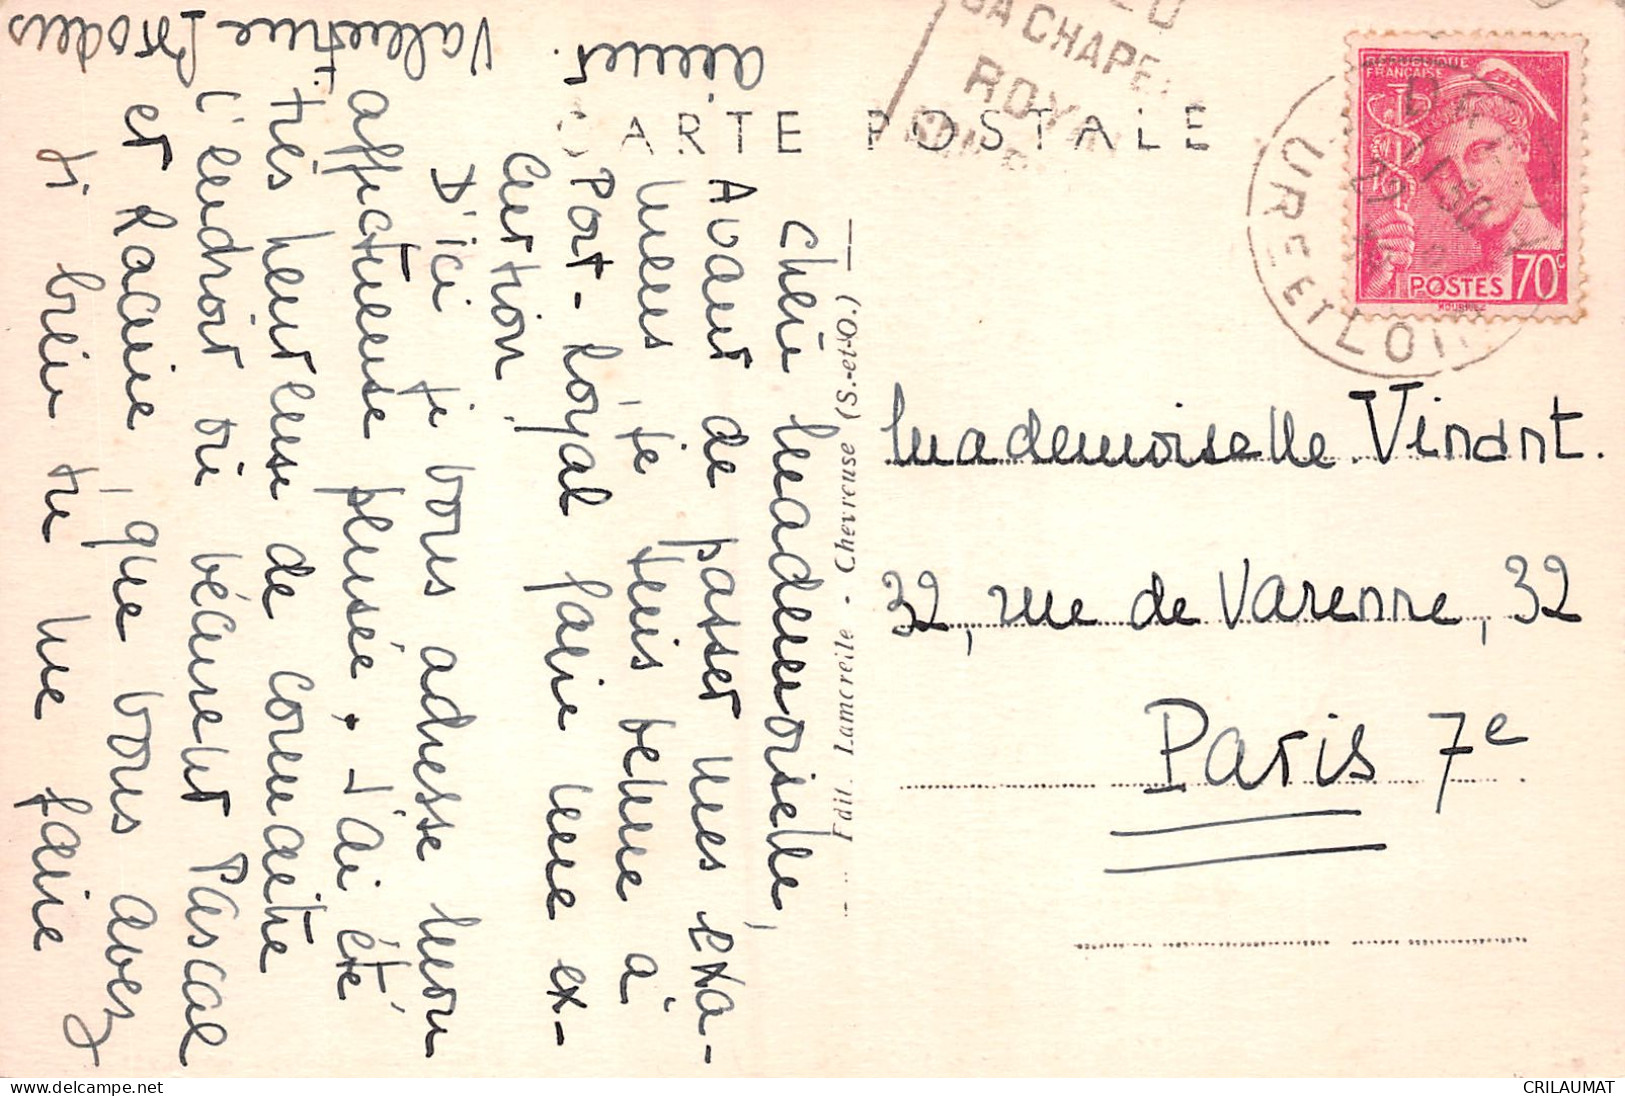 CARTE POSTALE
SA CHAPEL
ROY
RÉPUBLIQUE
FRANÇAISE
POSTES 70c
URE ET LOIR
Chère Mademoiselle,
Avant de passer mes exa-
mens, je suis venue à
Port-Royal faire une ex-
cursion.
D'ici je vous adresse mon
affectueuse pensée. J'ai été
très heureuse de connaître
l'endroit où vécurent Pascal
et Racine, que vous avez
si bien su me faire
aimer.
Valentine
Edit. Lamoreile - Chevreuse (S.-et-O.)
Mademoiselle Vinant.
32, rue de Varenne, 32
Paris 7e
CRILAUMAT
delcampe.net